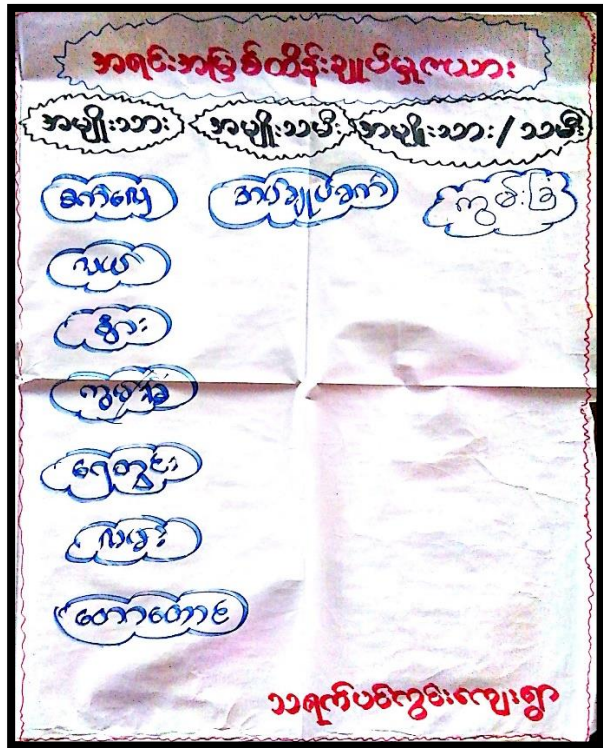 အရင်းအမြစ်ထိန်းချုပ်မှုဇယား
အမျိုးသား အမျိုးသမီး အမျိုးသား/သမီး
စက်လှေ အပ်ချုပ်စက် ကွမ်းခြံ
လယ်
နွား
ကွမ်းခြံ
ရေတွင်း
လမ်း
တောတောင်
သရက်ပင်ကွင်းကျေးရွာ